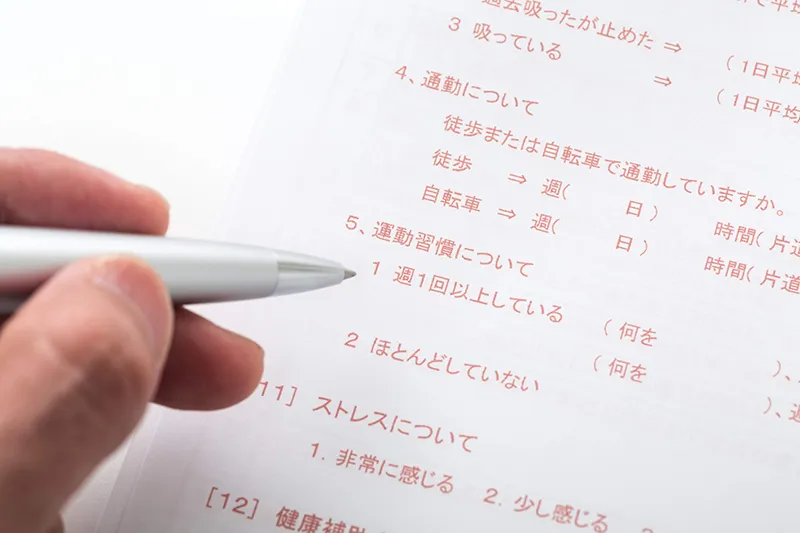 過去吸ったが止めた ⇒ (1日平均
3 吸っている ⇒ (1日平均
4、通勤について
徒歩または自転車で通勤していますか。
徒歩 ⇒ 週( 日) 時間(片道
自転車 ⇒ 週( 日) 時間(片道
5、運動習慣について
1 週1回以上している (何を )、
2 ほとんどしていない (何を )、週
11] ストレスについて
1. 非常に感じる 2. 少し感じる
[12] 健康補助